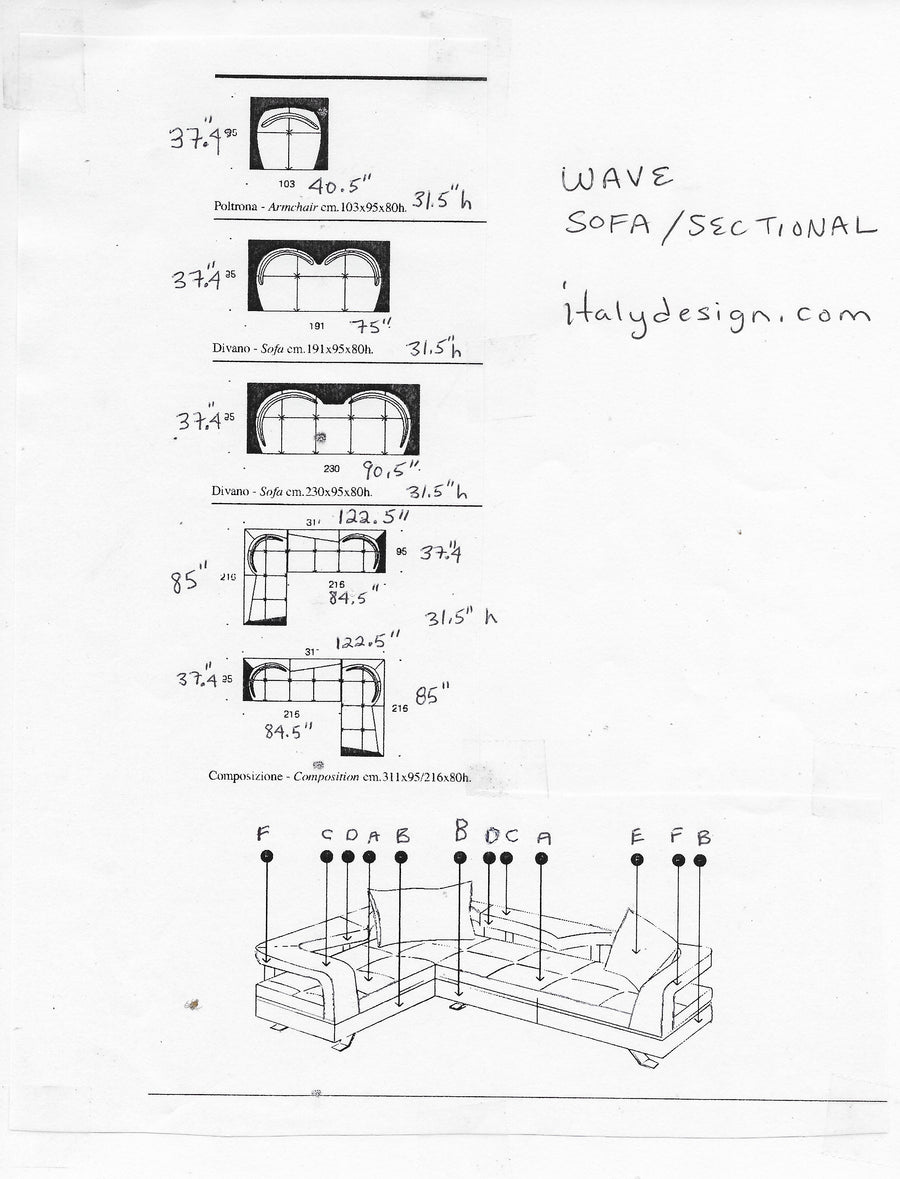 WAVE
SOFA/SECTIONAL
italydesign.com
37.4" 95
103 40.5"
Poltrona - Armchair cm.103x95x80h. 31.5"h
37.4" 95
191 75"
Divano - Sofa cm.191x95x80h. 31.5"h
37.4" 95
230 90,5"
Divano - Sofa cm.230x95x80h. 31.5"h
31' 122.5"
85" 216
95 37.4"
216
84,5"
31.5" h
31' 122.5"
37.4" 95
216 85"
216
84.5"
Composizione - Composition cm.311x95/216x80h.
F C D A B B D C A E F B